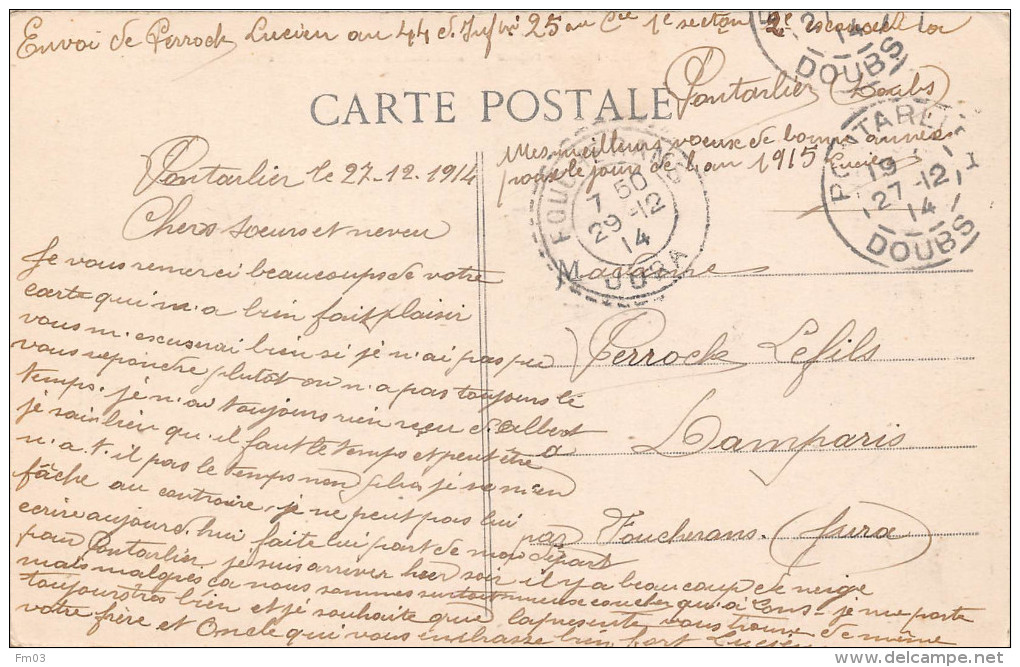 Envoi de Perrock Lucien au 44 d. Infrie 25 au Cie 1e section 2e escouade
Pontarlier (Doubs)
CARTE POSTALE
Mes meilleurs voeux de bonne année
pour le jour de l.an 1915 Lucien
PONTARLIER
19
27-12
14
DOUBS
27
14
DOUBS
FOUCHERANS
7 50
29-12
14
JURA
Pontarlier le 27-12-1914
Chers soeurs et neveu
Je vous remerci beaucoups de votre
carte qui m'a bien fait plaisir
vous m'escuserai bien si je n'ai pas pu
vous repondre plutôt on n.a pas toujours le
temps. je n.ai toujours rien reçu d'Albert
je sais bien qu'il faut le temps et peut être
n.a.t.il pas le temps non plus je ne m'en
fâche au contraire. je ne peut pas lui
écrire aujourd.hui faite lui part de mon départ
pour Pontarlier. je suis arriver hier soir il y a beaucoup de neige
mais malgrés ça nous sommes surtout mieux coucher qu'à Lons. je me porte
toujours très bien et je souhaite que la présente vous trouve de même
votre frère et Oncle qui vous embrasse bien fort Lucien
Madame
Perrock Lefils
à Damparis
par Foucherans. (Jura)
Fm03